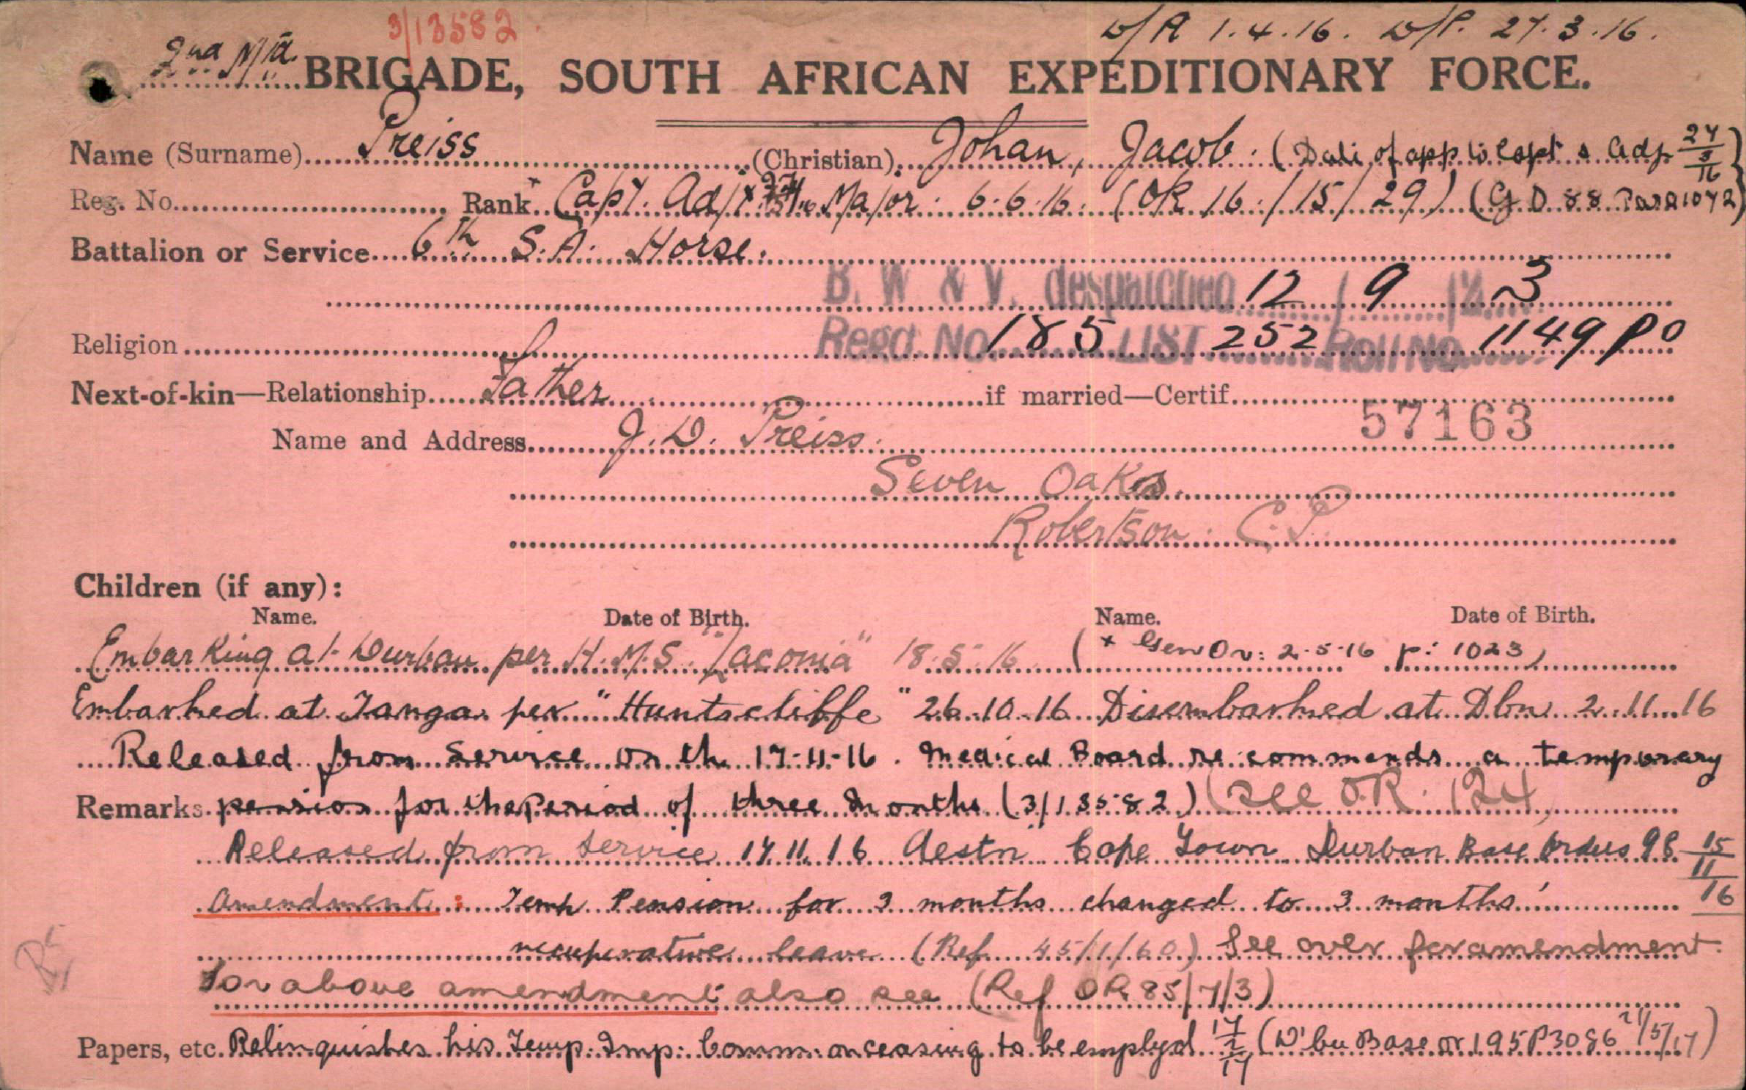 3/13582.
D/A 1.4.16. D/P. 27.3.16.
2nd Mtd. BRIGADE, SOUTH AFRICAN EXPEDITIONARY FORCE.
Name (Surname) Preiss (Christian) Johan Jacob. (Date of app to Capt & Adj. 27/3/16)
Reg. No. Rank Capt. Adjt Major 6.6.16. (OR 16/15/29) (G O 88 Para 1042)
Battalion or Service 6th S.A. Horse.
B. W & V. despatched 12/9/23
Religion Regd. No. 185 LIST 252 Roll No. 1149 PO
Next-of-kin—Relationship Father if married—Certif.
57163
Name and Address J. D. Preiss.
Seven Oaks.
Robertson. C.P.
Children (if any):
Name. Date of Birth. Name. Date of Birth.
Embarking at Durban per H.M.S. "Laconia" 18.5.16 (x Gen Or: 2.5.16 p: 1023)
Embarked at Tanga per "Huntscliffe" 26.10.16 Disembarked at Dbn 2.11.16
Released from Service on the 17-11-16. Medical Board recommends a temporary
Remarks pension for the Period of three Months (3/13582) (see O.R. 124
Released from Service 17.11.16 destn Cape Town Durban Base Orders 98 15/11/16
Amendment: Temp Pension for 3 months changed to 3 months'
recuperative leave (Ref 45/1/60) See over for amendment.
For above amendment also see (Ref OR 85/7/3)
Papers, etc. Relinquishes his Temp. Imp: Comm: on ceasing to be employd (D'bn Base or 195 P3086 21/5/17)